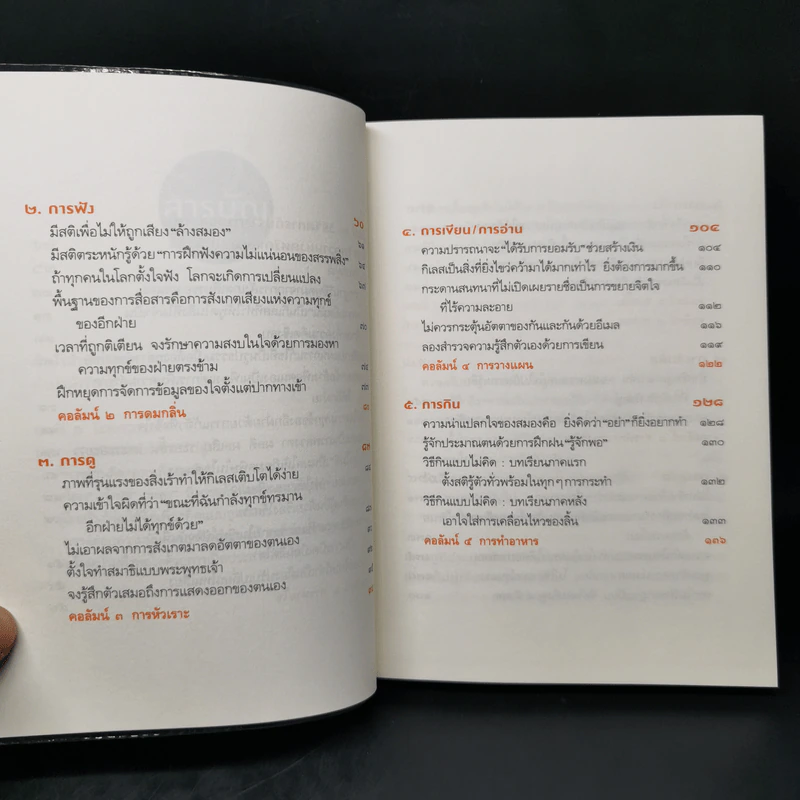 ๒. การฟัง ๖๐
มีสติเพื่อไม่ให้ถูกเสียง “ล้างสมอง” ๖๑
มีสติตระหนักรู้ด้วย “การฝึกฟังความไม่แน่นอนของสรรพสิ่ง” ๖๔
ถ้าทุกคนในโลกตั้งใจฟัง โลกจะเกิดการเปลี่ยนแปลง ๖๗
พื้นฐานของการสื่อสารคือการสังเกตเสียงแห่งความทุกข์
ของอีกฝ่าย ๗๐
เวลาที่ถูกติเตียน จงรักษาความสงบในใจด้วยการมองหา
ความทุกข์ของฝ่ายตรงข้าม ๗๔
ฝึกหยุดการจัดการข้อมูลของใจตั้งแต่ปากทางเข้า ๗๗
คอลัมน์ ๒ การดมกลิ่น
๓. การดู
ภาพที่รุนแรงของสิ่งเร้าทำให้กิเลสเติบโตได้ง่าย
ความเข้าใจผิดที่ว่า “ขณะที่ฉันกำลังทุกข์ทรมาน
อีกฝ่ายไม่ได้ทุกข์ด้วย”
ไม่เอาผลจากการสังเกตมาลดอัตตาของตนเอง
ตั้งใจทำสมาธิแบบพระพุทธเจ้า
จงรู้สึกตัวเสมอถึงการแสดงออกของตนเอง
คอลัมน์ ๓ การหัวเราะ
๔. การเขียน/การอ่าน ๑๐๔
ความปรารถนาจะ “ได้รับการยอมรับ” ช่วยสร้างเงิน ๑๐๔
กิเลสเป็นสิ่งที่ยิ่งไขว่คว้ามาได้มากเท่าไร ยิ่งต้องการมากขึ้น ๑๑๐
กระดานสนทนาที่ไม่เปิดเผยรายชื่อเป็นการขยายจิตใจ
ที่ไร้ความละอาย ๑๑๒
ไม่ควรกระตุ้นอัตตาของกันและกันด้วยอีเมล ๑๑๖
ลองสำรวจความรู้สึกตัวเองด้วยการเขียน ๑๑๙
คอลัมน์ ๔ การวางแผน ๑๒๒
๕. การกิน ๑๒๘
ความน่าแปลกใจของสมองคือ ยิ่งคิดว่า “อย่า” ก็ยิ่งอยากทำ ๑๒๘
รู้จักประมาณตนด้วยการฝึกฝน “รู้จักพอ” ๑๓๐
วิธีกินแบบไม่คิด : บทเรียนภาคแรก
ตั้งสติรู้ตัวทั่วพร้อมในทุกๆ การกระทำ ๑๓๒
วิธีกินแบบไม่คิด : บทเรียนภาคหลัง
เอาใจใส่การเคลื่อนไหวของลิ้น ๑๓๓
คอลัมน์ ๕ การทำอาหาร ๑๓๖